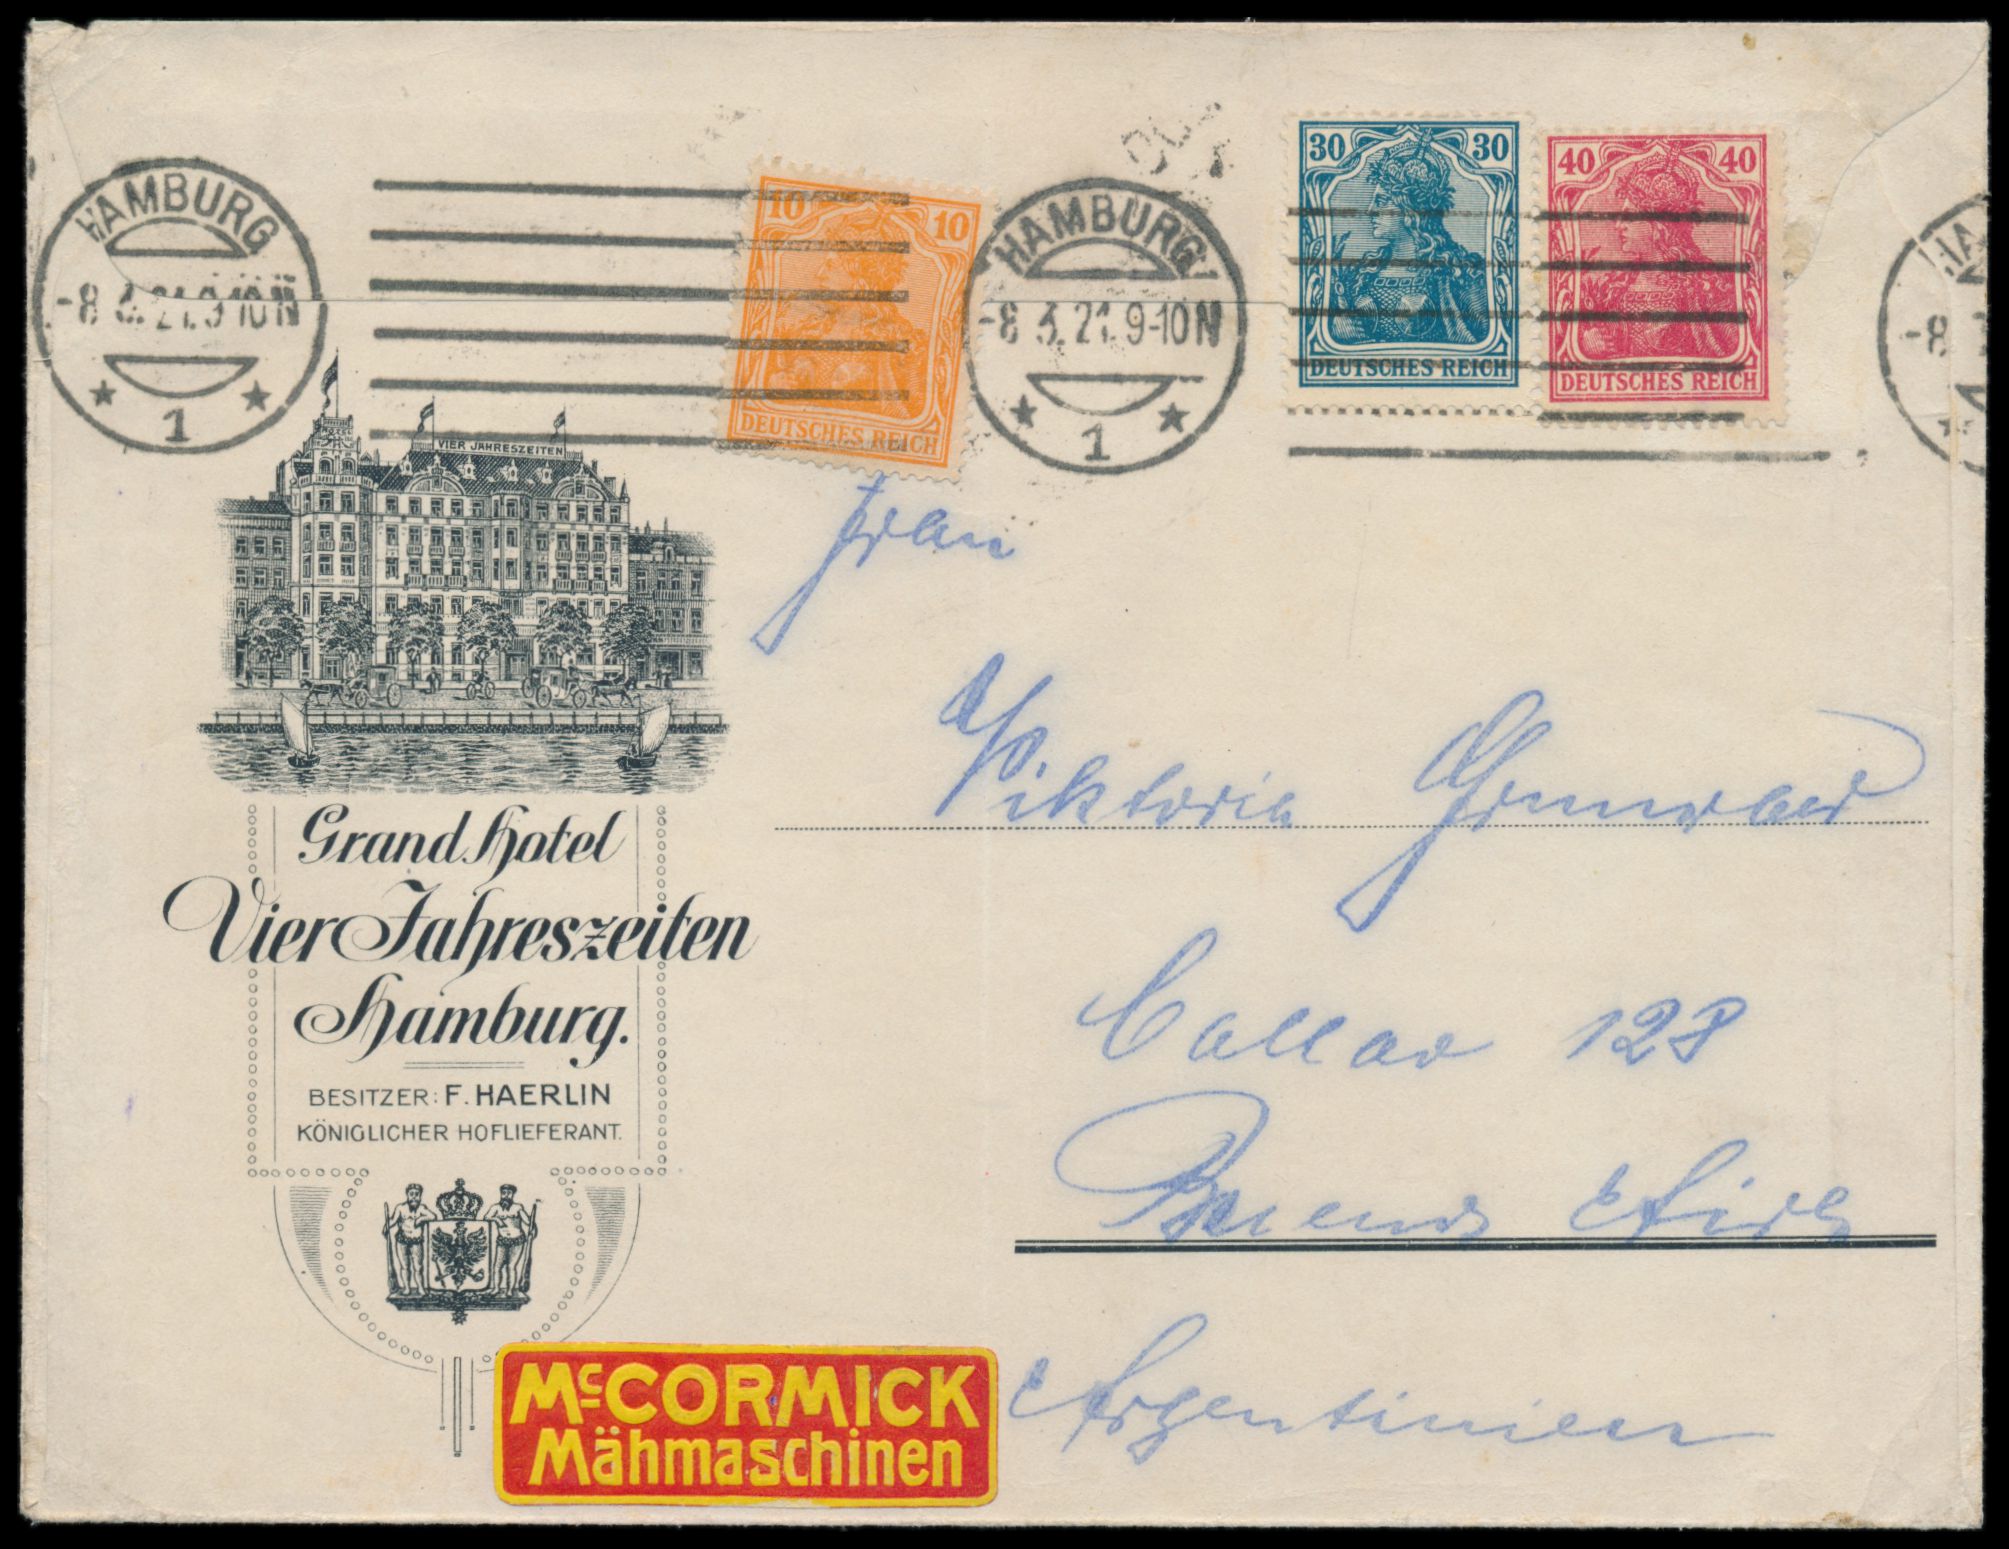 HAMBURG
-8.3.21.9-10N
1
10 10
DEUTSCHES REICH
HAMBURG
-8.3.21.9-10N
1
30 30
DEUTSCHES REICH
40 40
DEUTSCHES REICH
VIER JAHRESZEITEN
Grand Hotel
Vier Jahreszeiten
Hamburg.
BESITZER: F. HAERLIN
KÖNIGLICHER HOFLIEFERANT.
Frau
Viktoria
Callao 128
Buenos Aires
Argentinien
McCORMICK
Mähmaschinen